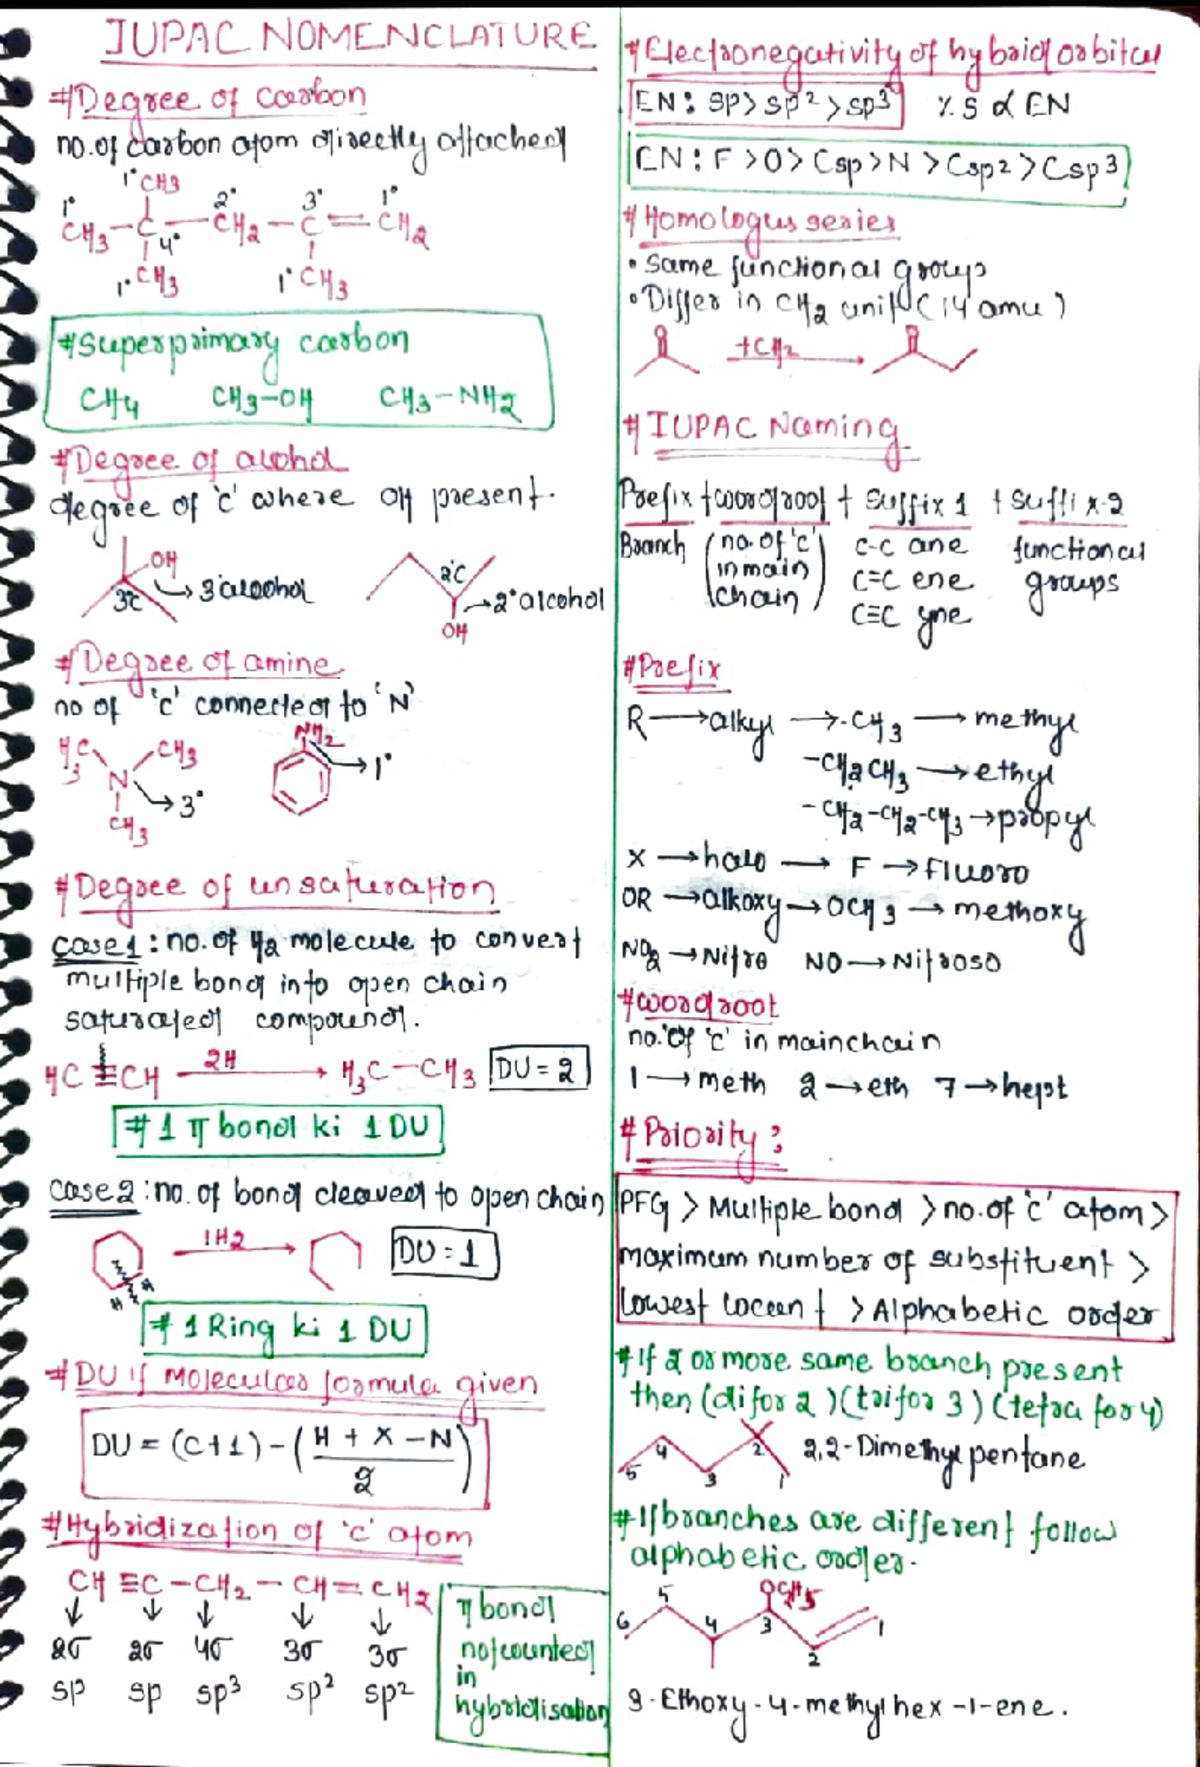 IUPAC NOMENCLATURE
#Degree of carbon
no. of carbon atom directly attached
1° CH3
1° 2° 3° 1°
CH3-C-CH2-C=CH2
4°
1° CH3 1° CH3
#Superprimary carbon
CH4 CH3-OH CH3-NH2
#Degree of alcohol
degree of 'c' where OH present.
OH
3°C → 3°alcohol
2°C → 2°alcohol
OH
#Degree of amine
no of 'c' connected to 'N'
H3C CH3
N → 3°
CH3
NH2 → 1°
#Degree of unsaturation
case1 : no. of H2 molecule to convert
multiple bond into open chain
saturated compound.
HC≡CH 2H → H3C-CH3 DU = 2
# 1 π bond ki 1 DU
case2 : no. of bond cleaved to open chain
1H2 → DU = 1
H H
# 1 Ring ki 1 DU
#DU if Molecular formula given
DU = (C+1) - (H + X - N / 2)
#Hybridization of 'c' atom
CH≡C-CH2-CH=CH2
↓ ↓ ↓ ↓ ↓
2σ 2σ 4σ 3σ 3σ
sp sp sp3 sp2 sp2
π bond
not counted
in
hybridisation
#Electronegativity of hybrid orbital
EN: sp > sp2 > sp3 %s ∝ EN
EN: F > O > Csp > N > Csp2 > Csp3
#Homologus series
• Same functional group
• Differ in CH2 unit (14 amu)
+CH2 →
#IUPAC Naming
Prefix + wordroot + suffix 1 + suffix-2
Branch (no. of 'c' in main chain) C-C ane functional
C=C ene groups
C≡C yne
#Prefix
R → alkyl → -CH3 → methyl
-CH2CH3 → ethyl
-CH2-CH2-CH3 → propyl
X → halo → F → Fluoro
OR → alkoxy → OCH3 → methoxy
NO2 → Nitro NO → Nitroso
#wordroot
no. of 'c' in mainchain
1 → meth 2 → eth 7 → hept
#Priority:
PFG > Multiple bond > no. of 'c' atom >
maximum number of substituent >
Lowest locant > Alphabetic order
#If 2 or more same branch present
then (di for 2) (tri for 3) (tetra for 4)
5 4 3 2 1 2,2-Dimethyl pentane
#If branches are different follow
alphabetic order.
OC2H5
6 5 4 3 2 1
3-Ethoxy-4-methyl hex-1-ene.